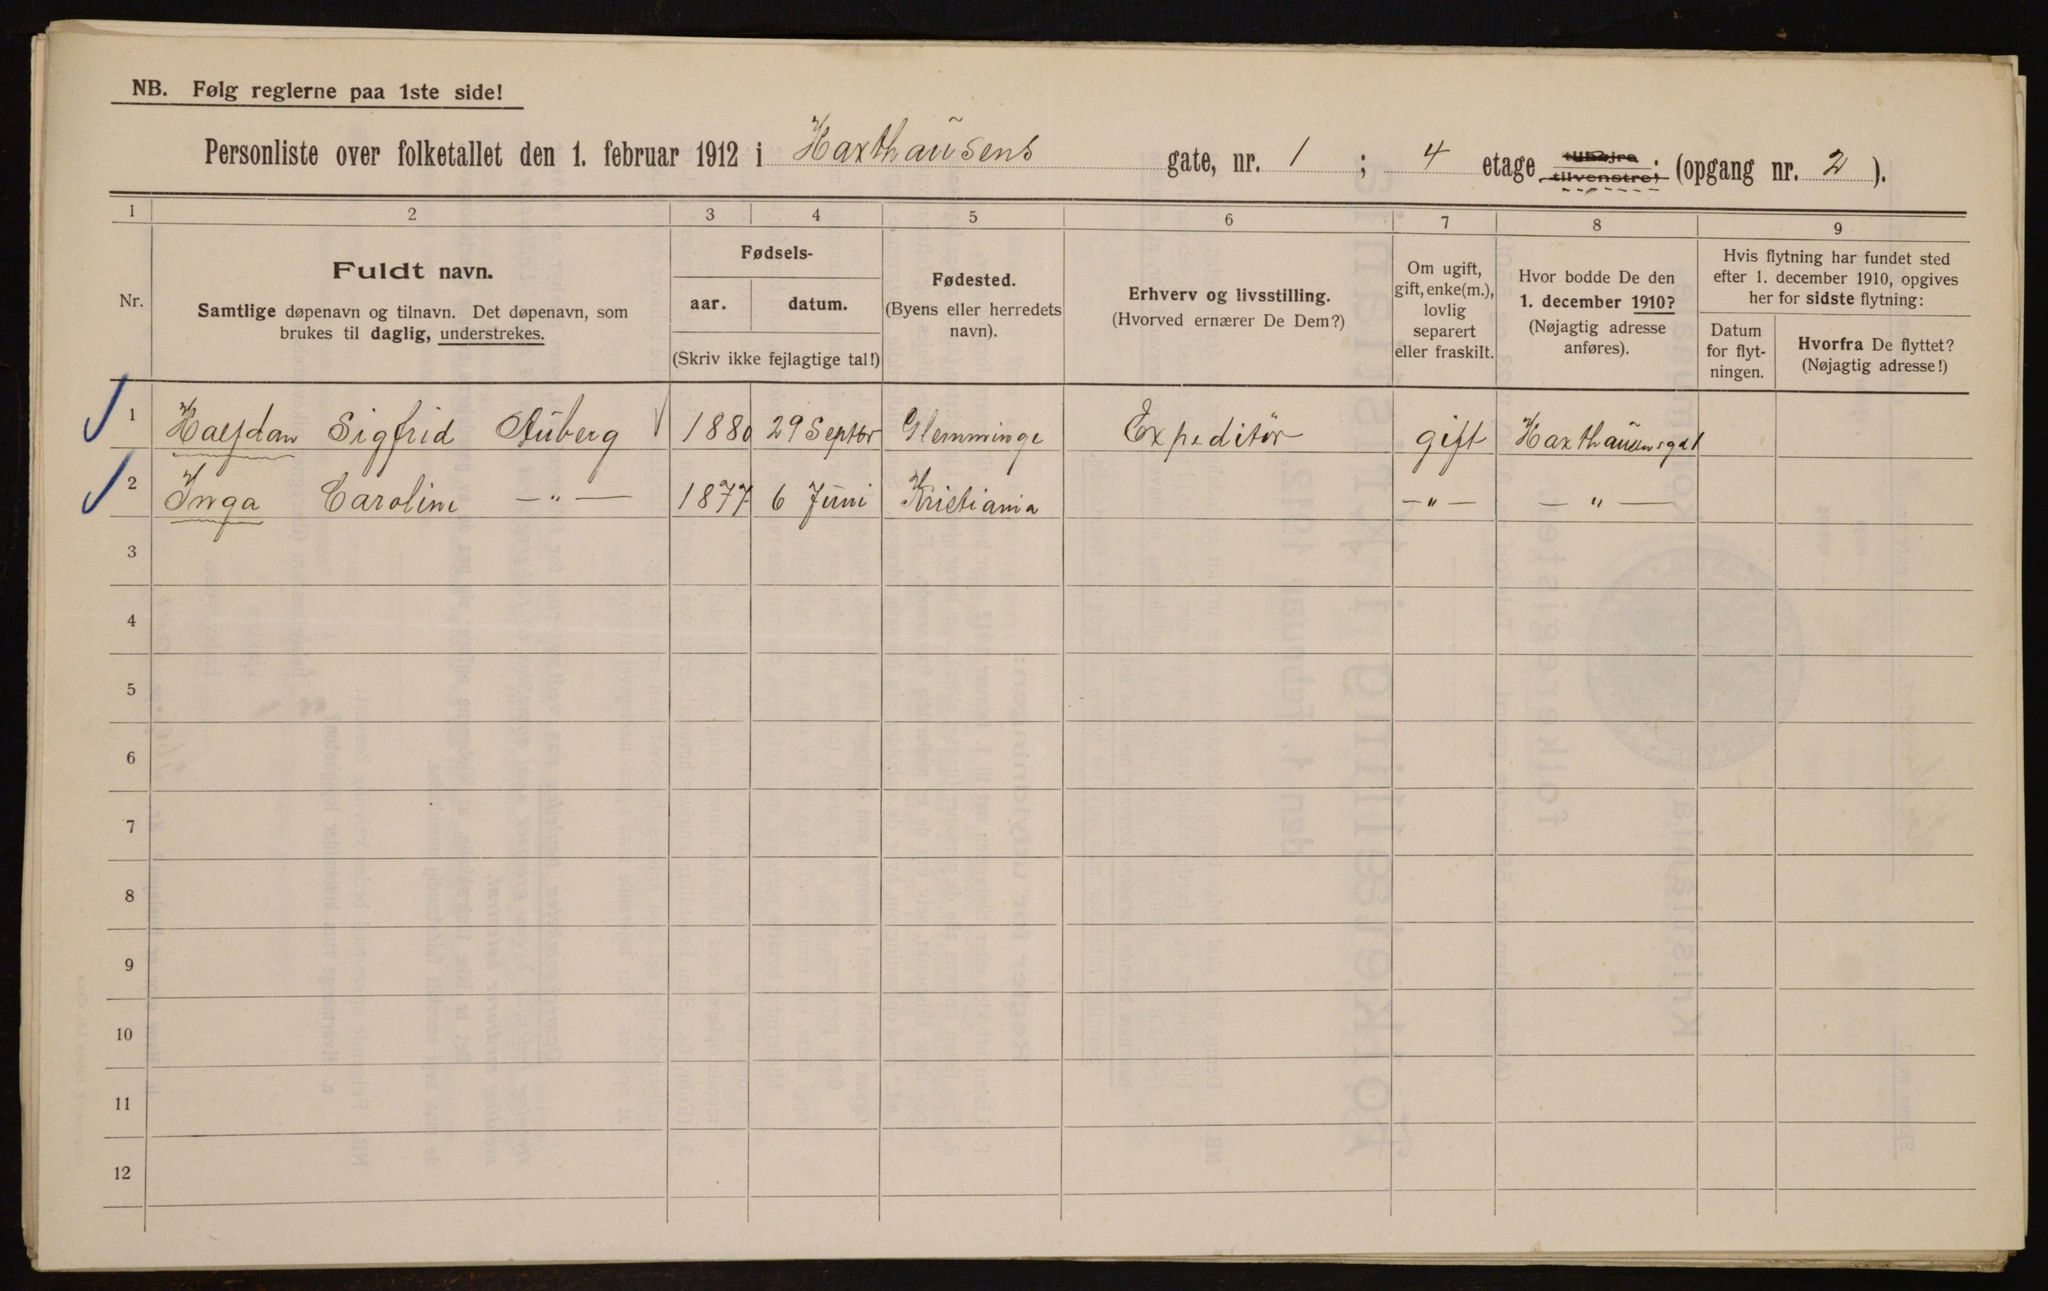 NB. Følg reglerne paa 1ste side!
Personliste over folketallet den 1. februar 1912 i Haxthausens gate, nr. 1 ; 4 etage tilhøjre tilvenstre; (opgang nr. 2).
1 2 3 4 5 6 7 8 9
Nr.
Fuldt navn.
Samtlige døpenavn og tilnavn. Det døpenavn, som
brukes til daglig, understrekes.
Fødsels-
aar. datum.
(Skriv ikke fejlagtige tal!)
Fødested.
(Byens eller herredets
navn).
Erhverv og livsstilling.
(Hvorved ernærer De Dem?)
Om ugift,
gift, enke(m.),
lovlig
separert
eller fraskilt.
Hvor bodde De den
1. december 1910?
(Nøjagtig adresse
anføres).
Hvis flytning har fundet sted
efter 1. december 1910, opgives
her for sidste flytning:
Datum
for flyt-
ningen.
Hvorfra De flyttet?
(Nøjagtig adresse!)
1 Halfdan Sigfrid Auberg 1880 29 Septbr Glemminge Expeditör gift Haxthausensgd 1
2 Inga Caroline —"— 1877 6 Juni Kristiania —"— —"—
3
4
5
6
7
8
9
10
11
12